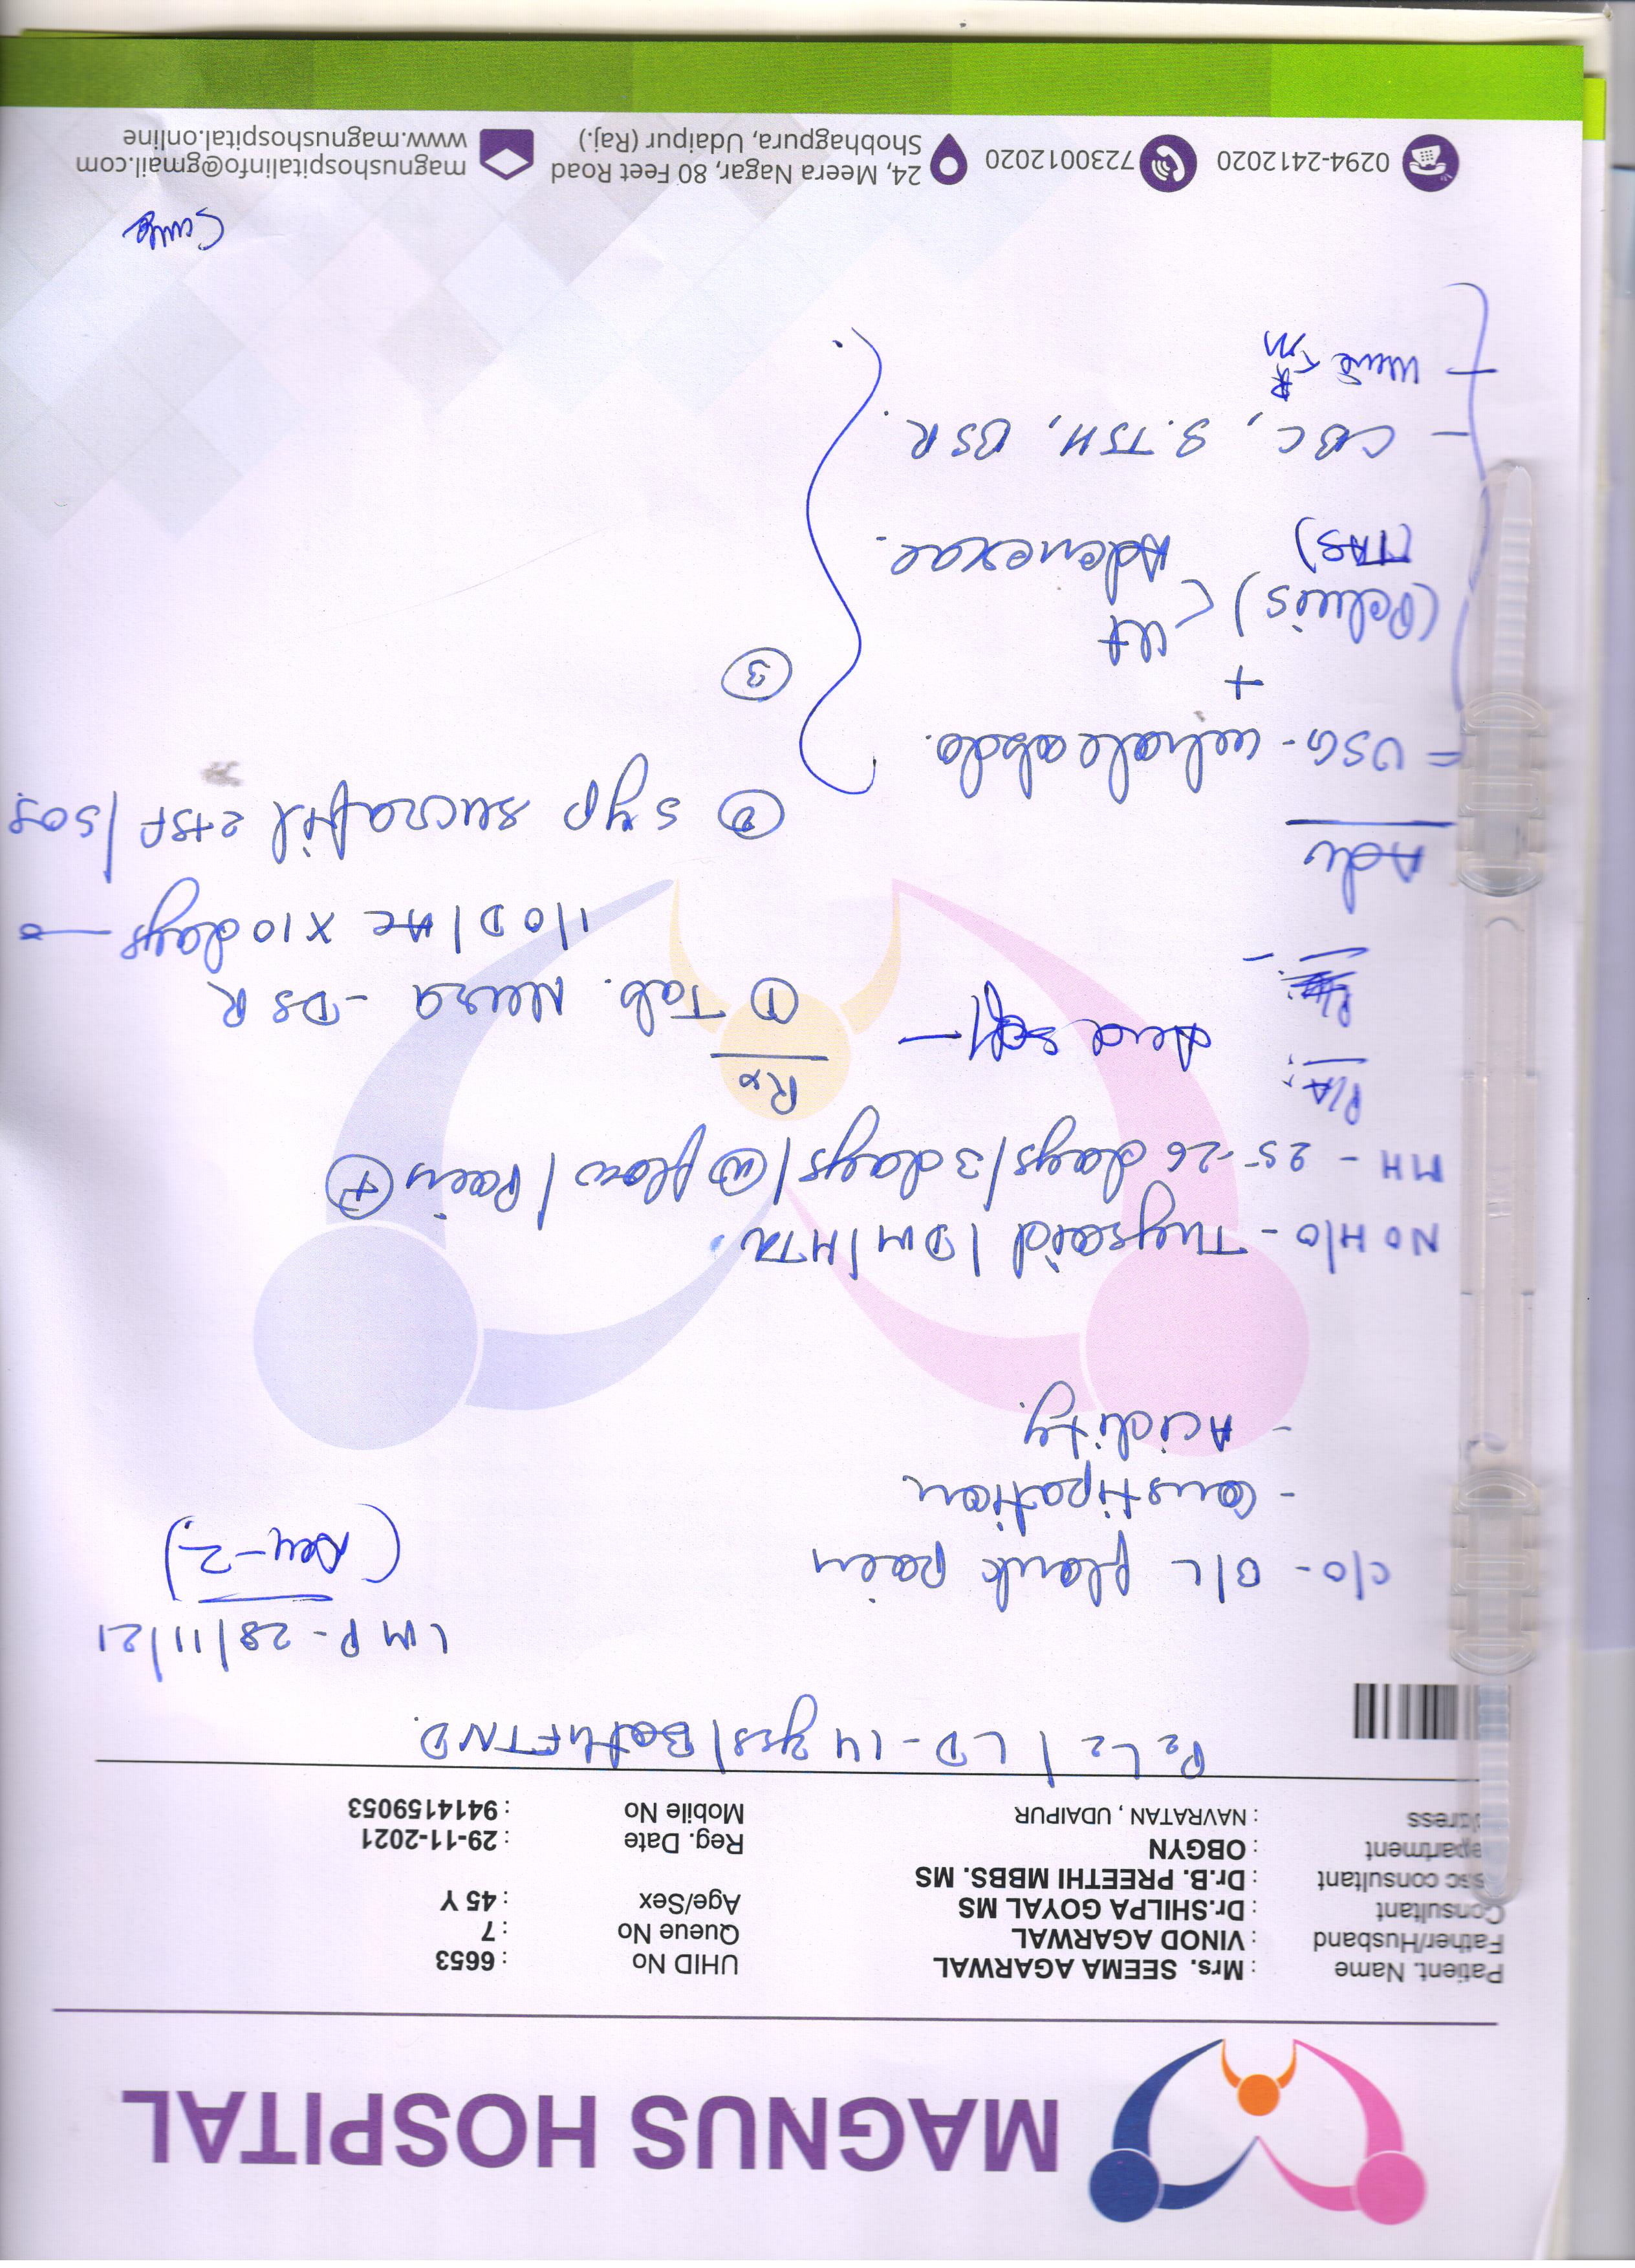 MAGNUS HOSPITAL
Patient. Name : Mrs. SEEMA AGARWAL UHID No : 6653
Father/Husband : VINOD AGARWAL Queue No : 7
Consultant : Dr.SHILPA GOYAL MS Age/Sex : 45 Y
ssc consultant : Dr.B. PREETHI MBBS. MS
epartment : OBGYN Reg. Date : 29-11-2021
dress : NAVRATAN , UDAIPUR Mobile No : 9414159053
P2L2 / LD - 14 yrs / Both FTND.
LMP - 28/11/21
c/o - O/L flank pain
- Constipation
- Acidity.
No H/o - Thyroid / DM / HTN.
MH - 25-26 days / 3 days / (N) flow / Pain (+)
P/A:
Rx
① Tab. - DSR
1/OD/AC x 10 days
② Syp sucrafil 2tsf / SOS
③
Adv
= USG - whole abdo.
+
(Pelvis) < Ut
Adenexae.
(TAS)
- CBC, S.TSH, BSR.
- Urine R
M
0294-2412020
7230012020
24, Meera Nagar, 80 Feet Road
Shobhagpura, Udaipur (Raj.)
magnushospitalinfo@gmail.com
www.magnushospital.online